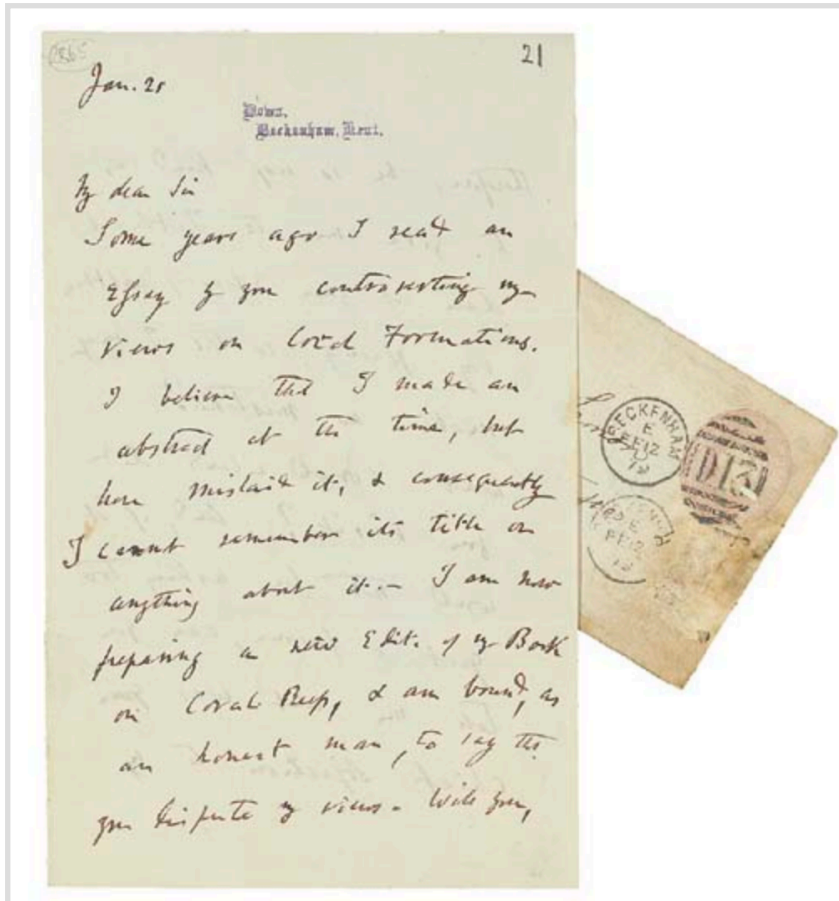 21
Jan. 21
Down,
Beckenham, Kent.
My dear Sir
Some years ago I read an
Essay by you controverting my
views on Coral Formations.
I believe that I made an
abstract at the time, but
have mislaid it, & consequently
I cannot remember its title or
anything about it. – I am now
preparing a new Edit. of my Book
on Coral Reefs, & am bound, as
an honest man, to say that
you dispute my views. – Will you,
BECKENHAM
E
FE12
79
D13
FE12
79